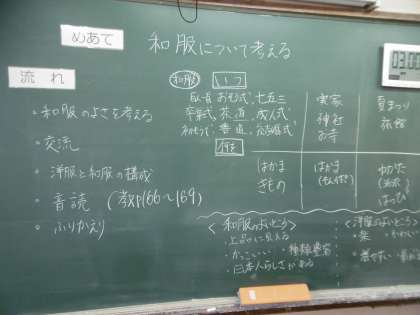 めあて
和服について考える
流れ
・和服のよさを考える
・交流
・洋服と和服の構成
・音読 (教P166〜169)
・ふりかえり
和服
いつ
七五三
卒業式、茶道、成人式
書道、結婚式
実家
神社
お寺
夏まつり
旅館
はかま
きもの
はかま
ゆかた
はっぴ
<和服のよいところ>
・上品に見える
・かっこいい ・種類豊富
・日本人らしさがある
<洋服のよいところ>
・楽 ・かわいい